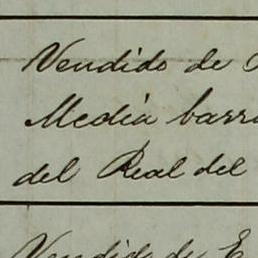 Vendido de
Media barra
del Real del
Vendido de E